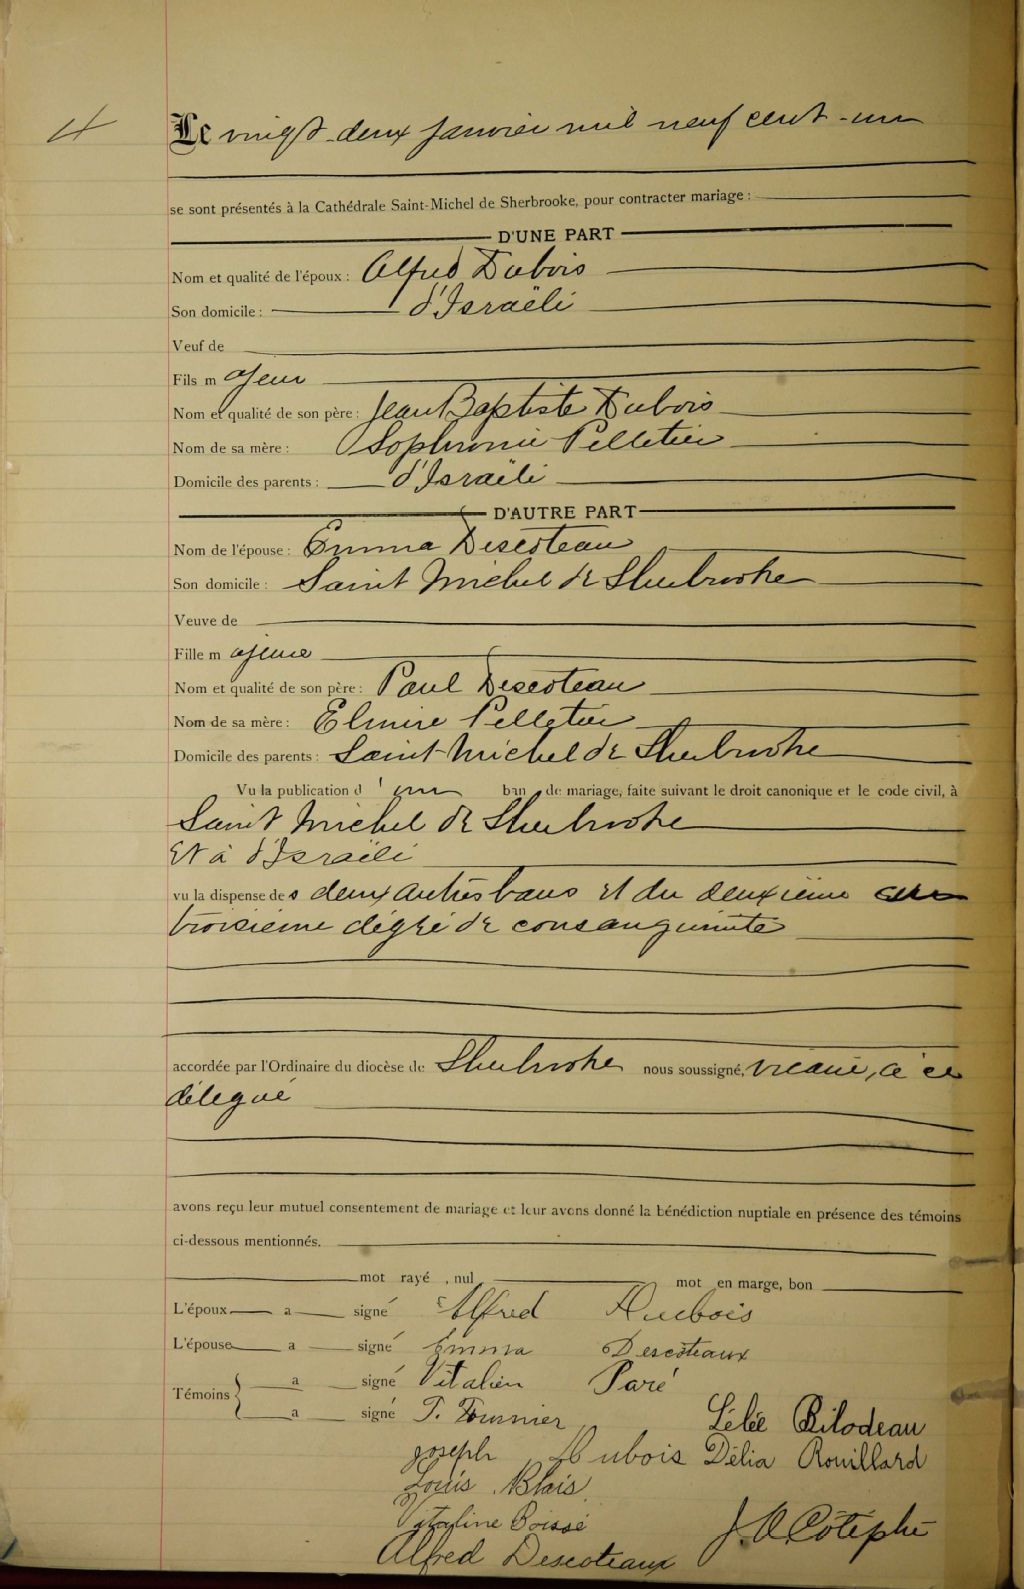 4
Le vingt-deux janvier mil neuf cent-un
se sont présentés à la Cathédrale Saint-Michel de Sherbrooke, pour contracter mariage :
D'UNE PART
Nom et qualité de l'époux : Alfred Dubois
Son domicile : d'Israëli
Veuf de
Fils majeur
Nom et qualité de son père : Jean Baptiste Dubois
Nom de sa mère : Sophronie Pelletier
Domicile des parents : d'Israëli
D'AUTRE PART
Nom de l'épouse : Emma Descoteau
Son domicile : Saint Michel de Sherbrooke
Veuve de
Fille majeure
Nom et qualité de son père : Paul Descoteau
Nom de sa mère : Elmire Pelletier
Domicile des parents : Saint-Michel de Sherbrooke
Vu la publication d'un ban de mariage, faite suivant le droit canonique et le code civil, à
Saint Michel de Sherbrooke
et à d'Israëli
vu la dispense des deux autres bans et du deuxième au
troisième dégré de consanguinité
accordée par l'Ordinaire du diocèse de Sherbrooke nous soussigné, vicaire, à ce
délégué
avons reçu leur mutuel consentement de mariage et leur avons donné la bénédiction nuptiale en présence des témoins
ci-dessous mentionnés.
mot rayé, nul mot en marge, bon
L'époux a signé Alfred Dubois
L'épouse a signé Emma Descoteaux
Témoins a signé Vitalien Paré
a signé T. Fournier Lélée Bilodeau
Joseph Dubois Délia Rouillard
Louis Blais
Vitaline Boissé J. A. Côté ptre
Alfred Descoteaux